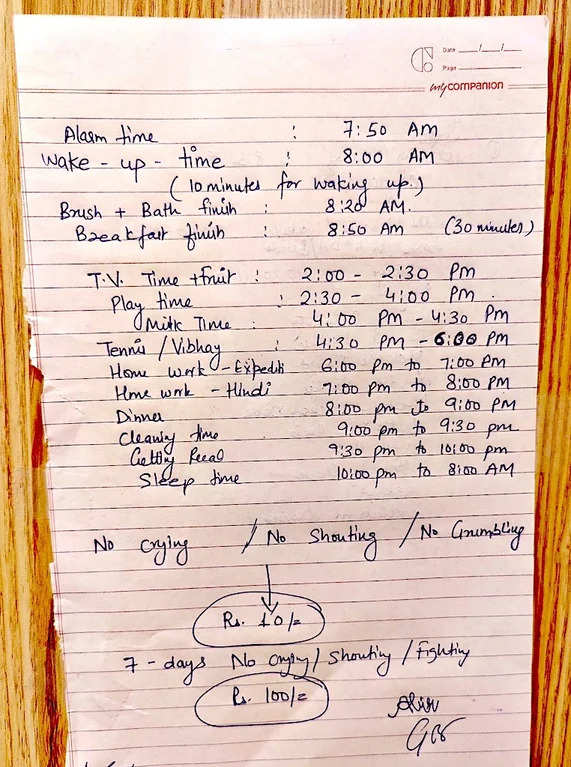 Date __/__/__
Page ______
mycompanion
Alarm time : 7:50 AM
Wake-up-time : 8:00 AM
(10 minutes for waking up.)
Brush + Bath finish : 8:20 AM.
Breakfast finish : 8:50 Am (30 minutes)
T.V. Time + fruit : 2:00 - 2:30 Pm
Play time : 2:30 - 4:00 Pm.
Milk Time : 4:00 Pm - 4:30 Pm
Tennis / Vibhay : 4:30 Pm - 6:00 Pm
Home work - 6:00 Pm to 7:00 Pm
Home work - Hindi 7:00 Pm to 8:00 PM
Dinner 8:00 Pm to 9:00 PM
Cleaning time 9:00 Pm to 9:30 pm
Getting 9:30 pm to 10:00 pm
Sleep time 10:00 pm to 8:00 AM
No crying / No Shouting / No Grumbling
Rs. 10/=
7-days No crying / Shouting / Fighting
Rs. 100/=